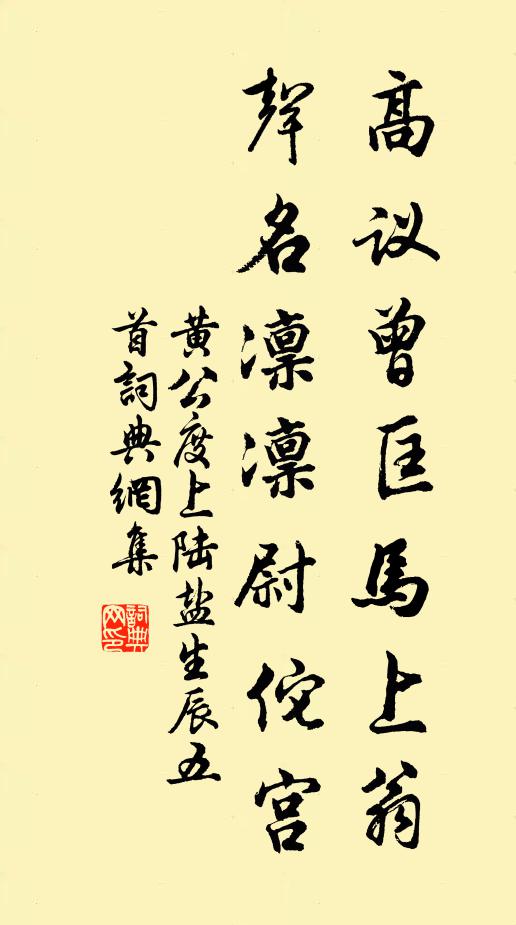 高议曾匡馬上翁
聲名凛凛尉佗宫
黄公度上陆盐生辰五
首詞典網集
詞典网印